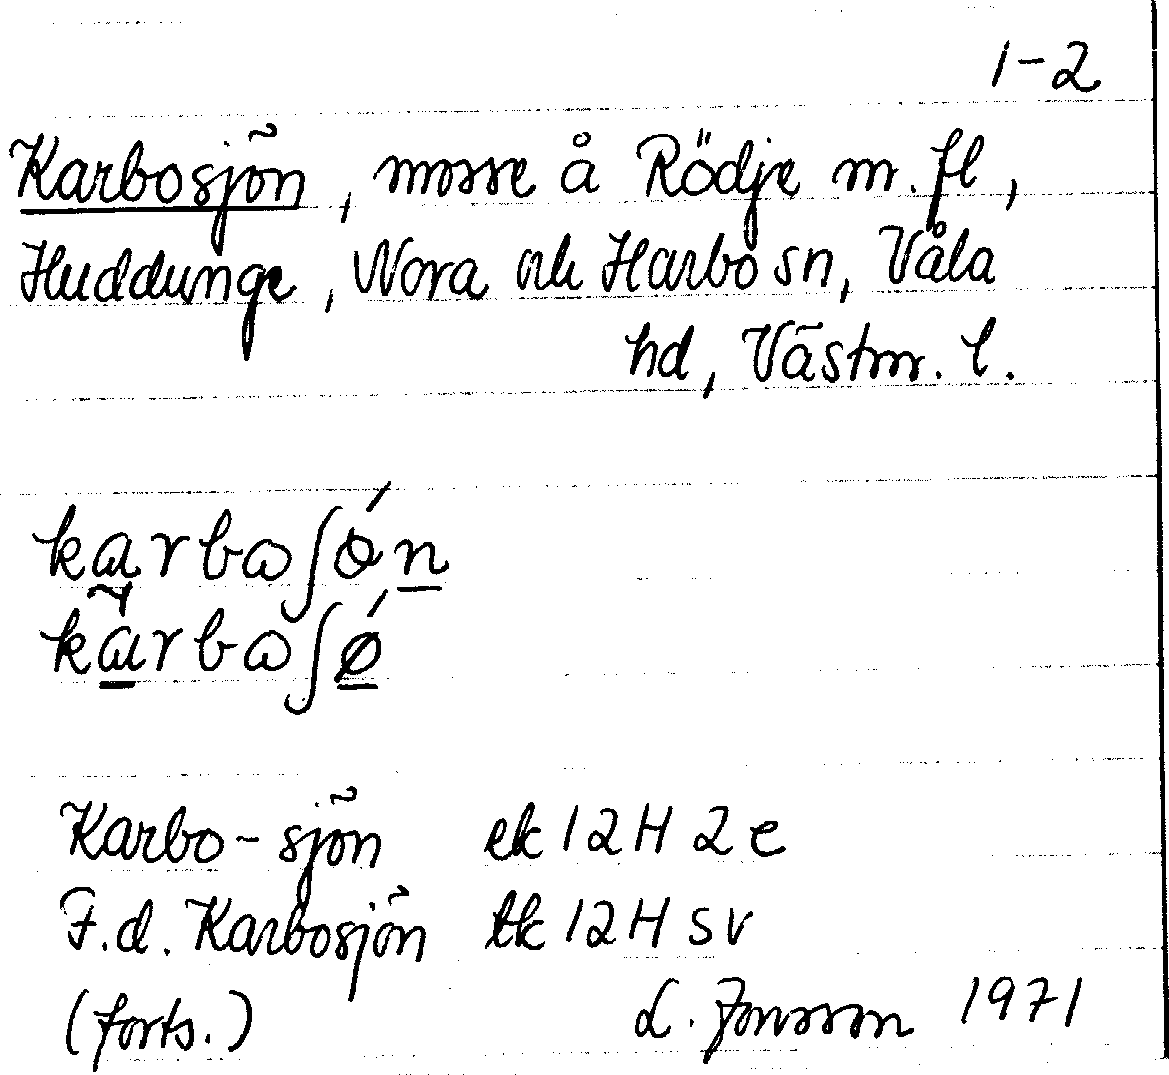 1-2
Karbosjön, mosse å Rödje m. fl,
Huddunge, Nora och Harbo sn, Våla
hd, Västm. l.
karbωʃǿn
kàrbωʃǿ
Karbo-sjön ek 12H 2e
F.d. Karbosjön tk 12H SV
(forts.) L. Jonsson 1971